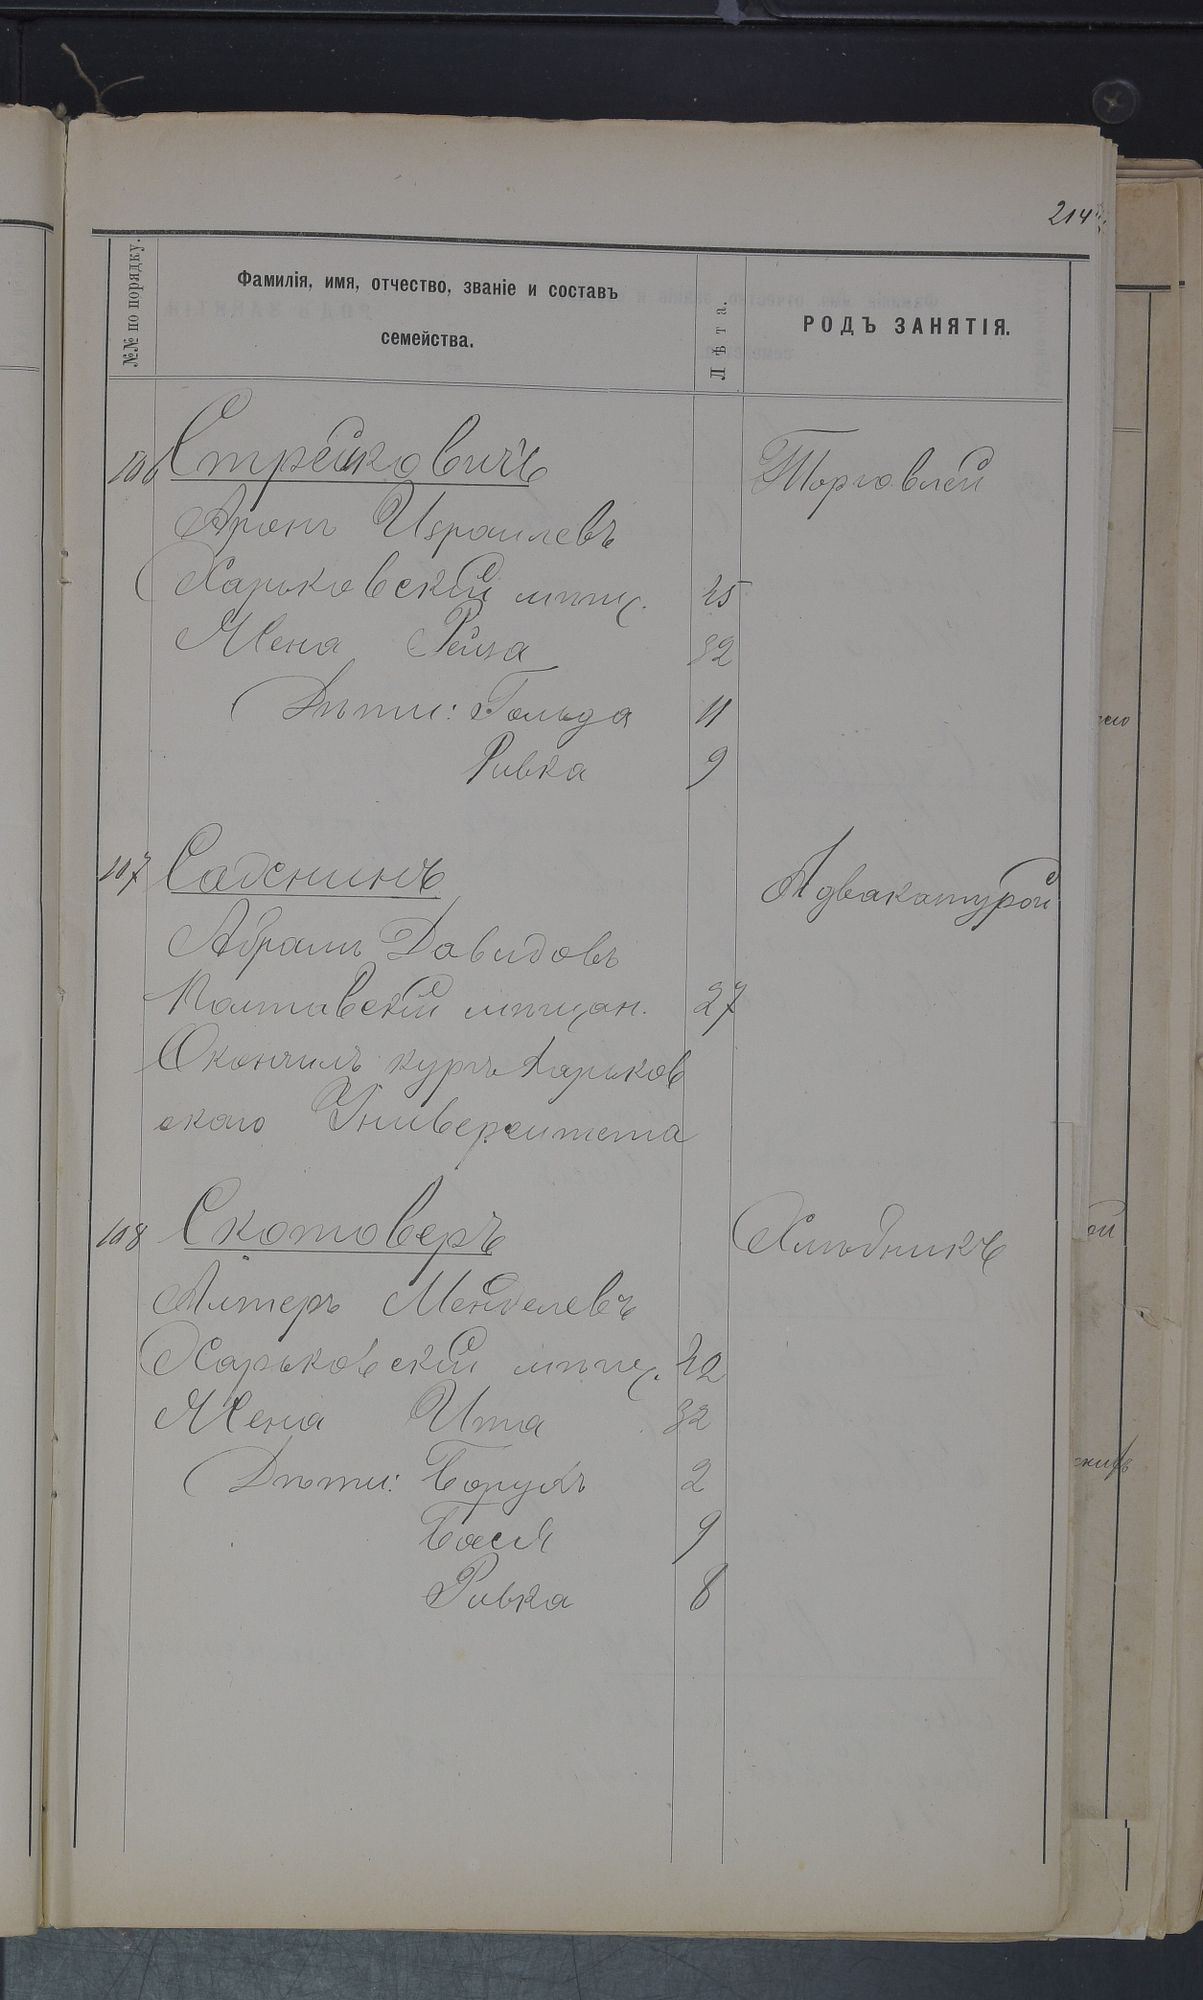 214
№№ по порядку.
Фамилія, имя, отчество, званіе и составъ
семейства.
Лѣта.
РОДЪ ЗАНЯТІЯ.
106 Стрейковичъ Торговлей
Аронъ Израилевъ
Харьковскій мѣщ. 45
Жена Рейза 32
Дѣти: Гольда 11
Ривка 9
107 Сажнинъ Адвакатурой
Абрамъ Давидовъ
Полтавскій мѣщан. 27
Окончилъ курсъ Харьков
скаго Университета
108 Скотоверъ Хлѣбникъ
Алтеръ Менделевъ
Харьковскій мѣщ. 42
Жена Ита 32
Дѣти: Борухъ 2
Бася 9
Ривка 8